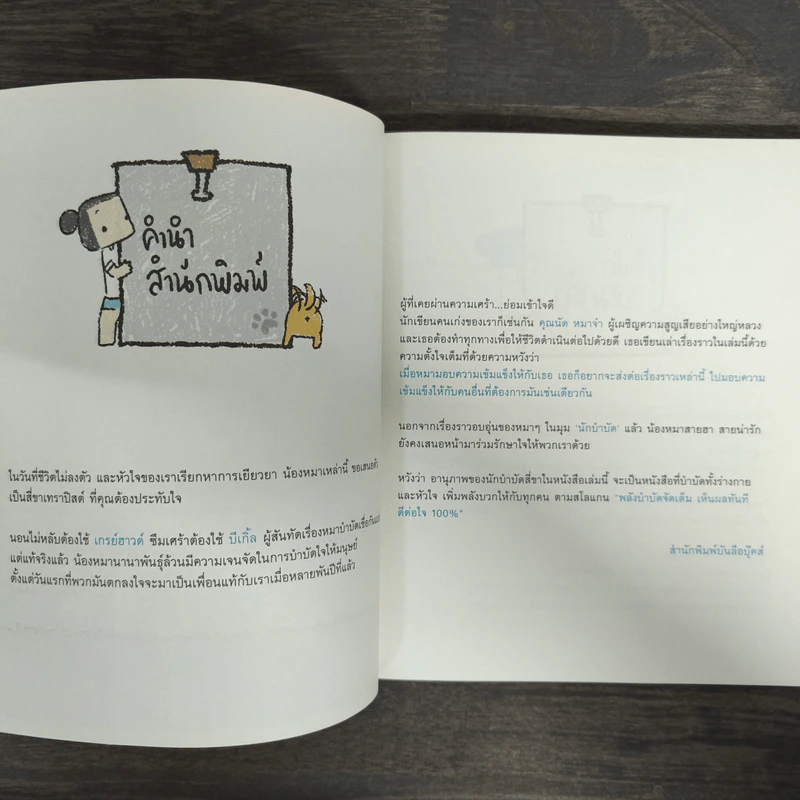 คำนำ
สำนักพิมพ์
ในวันที่ชีวิตไม่ลงตัว และหัวใจของเราเรียกหาการเยียวยา น้องหมาเหล่านี้ ขอเสนอตัว
เป็นสี่ขาเทราปิสต์ ที่คุณต้องประทับใจ
นอนไม่หลับต้องใช้ เกรย์ฮาวด์ ซึมเศร้าต้องใช้ บีเกิ้ล ผู้สันทัดเรื่องหมาบำบัดเชื่อกันแบบ
แต่แท้จริงแล้ว น้องหมานานาพันธุ์ล้วนมีความเจนจัดในการบำบัดใจให้มนุษย์
ตั้งแต่วันแรกที่พวกมันตกลงใจจะมาเป็นเพื่อนแท้กับเราเมื่อหลายพันปีที่แล้ว
ผู้ที่เคยผ่านความเศร้า...ย่อมเข้าใจดี
นักเขียนคนเก่งของเราก็เช่นกัน คุณนัด หมาจ๋า ผู้เผชิญความสูญเสียอย่างใหญ่หลวง
และเธอต้องทำทุกทางเพื่อให้ชีวิตดำเนินต่อไปด้วยดี เธอเขียนเล่าเรื่องราวในเล่มนี้ด้วย
ความตั้งใจเต็มที่ด้วยความหวังว่า
เมื่อหมามอบความเข้มแข็งให้กับเธอ เธอก็อยากจะส่งต่อเรื่องราวเหล่านี้ ไปมอบความ
เข้มแข็งให้กับคนอื่นที่ต้องการมันเช่นเดียวกัน
นอกจากเรื่องราวอบอุ่นของหมาๆ ในมุม 'นักบำบัด' แล้ว น้องหมาสายฮา สายน่ารัก
ยังคงเสนอหน้ามาร่วมรักษาใจให้พวกเราด้วย
หวังว่า อานุภาพของนักบำบัดสี่ขาในหนังสือเล่มนี้ จะเป็นหนังสือที่บำบัดทั้งร่างกาย
และหัวใจ เพิ่มพลังบวกให้กับทุกคน ตามสโลแกน "พลังบำบัดจัดเต็ม เห็นผลทันที
ดีต่อใจ 100%"
สำนักพิมพ์บันลือบุ๊คส์